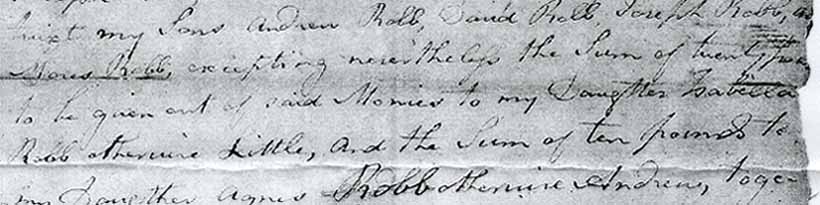 twixt my Sons Andrew Robb, David Robb, Joseph Robb,
Moses Robb, excepting nevertheless the Sum of twenty
to be given out of said Monies to my Daughter Isabella
Robb otherwise Little, and the Sum of ten pounds to
my Daughter Agnes Robb otherwise Andrew, toge-